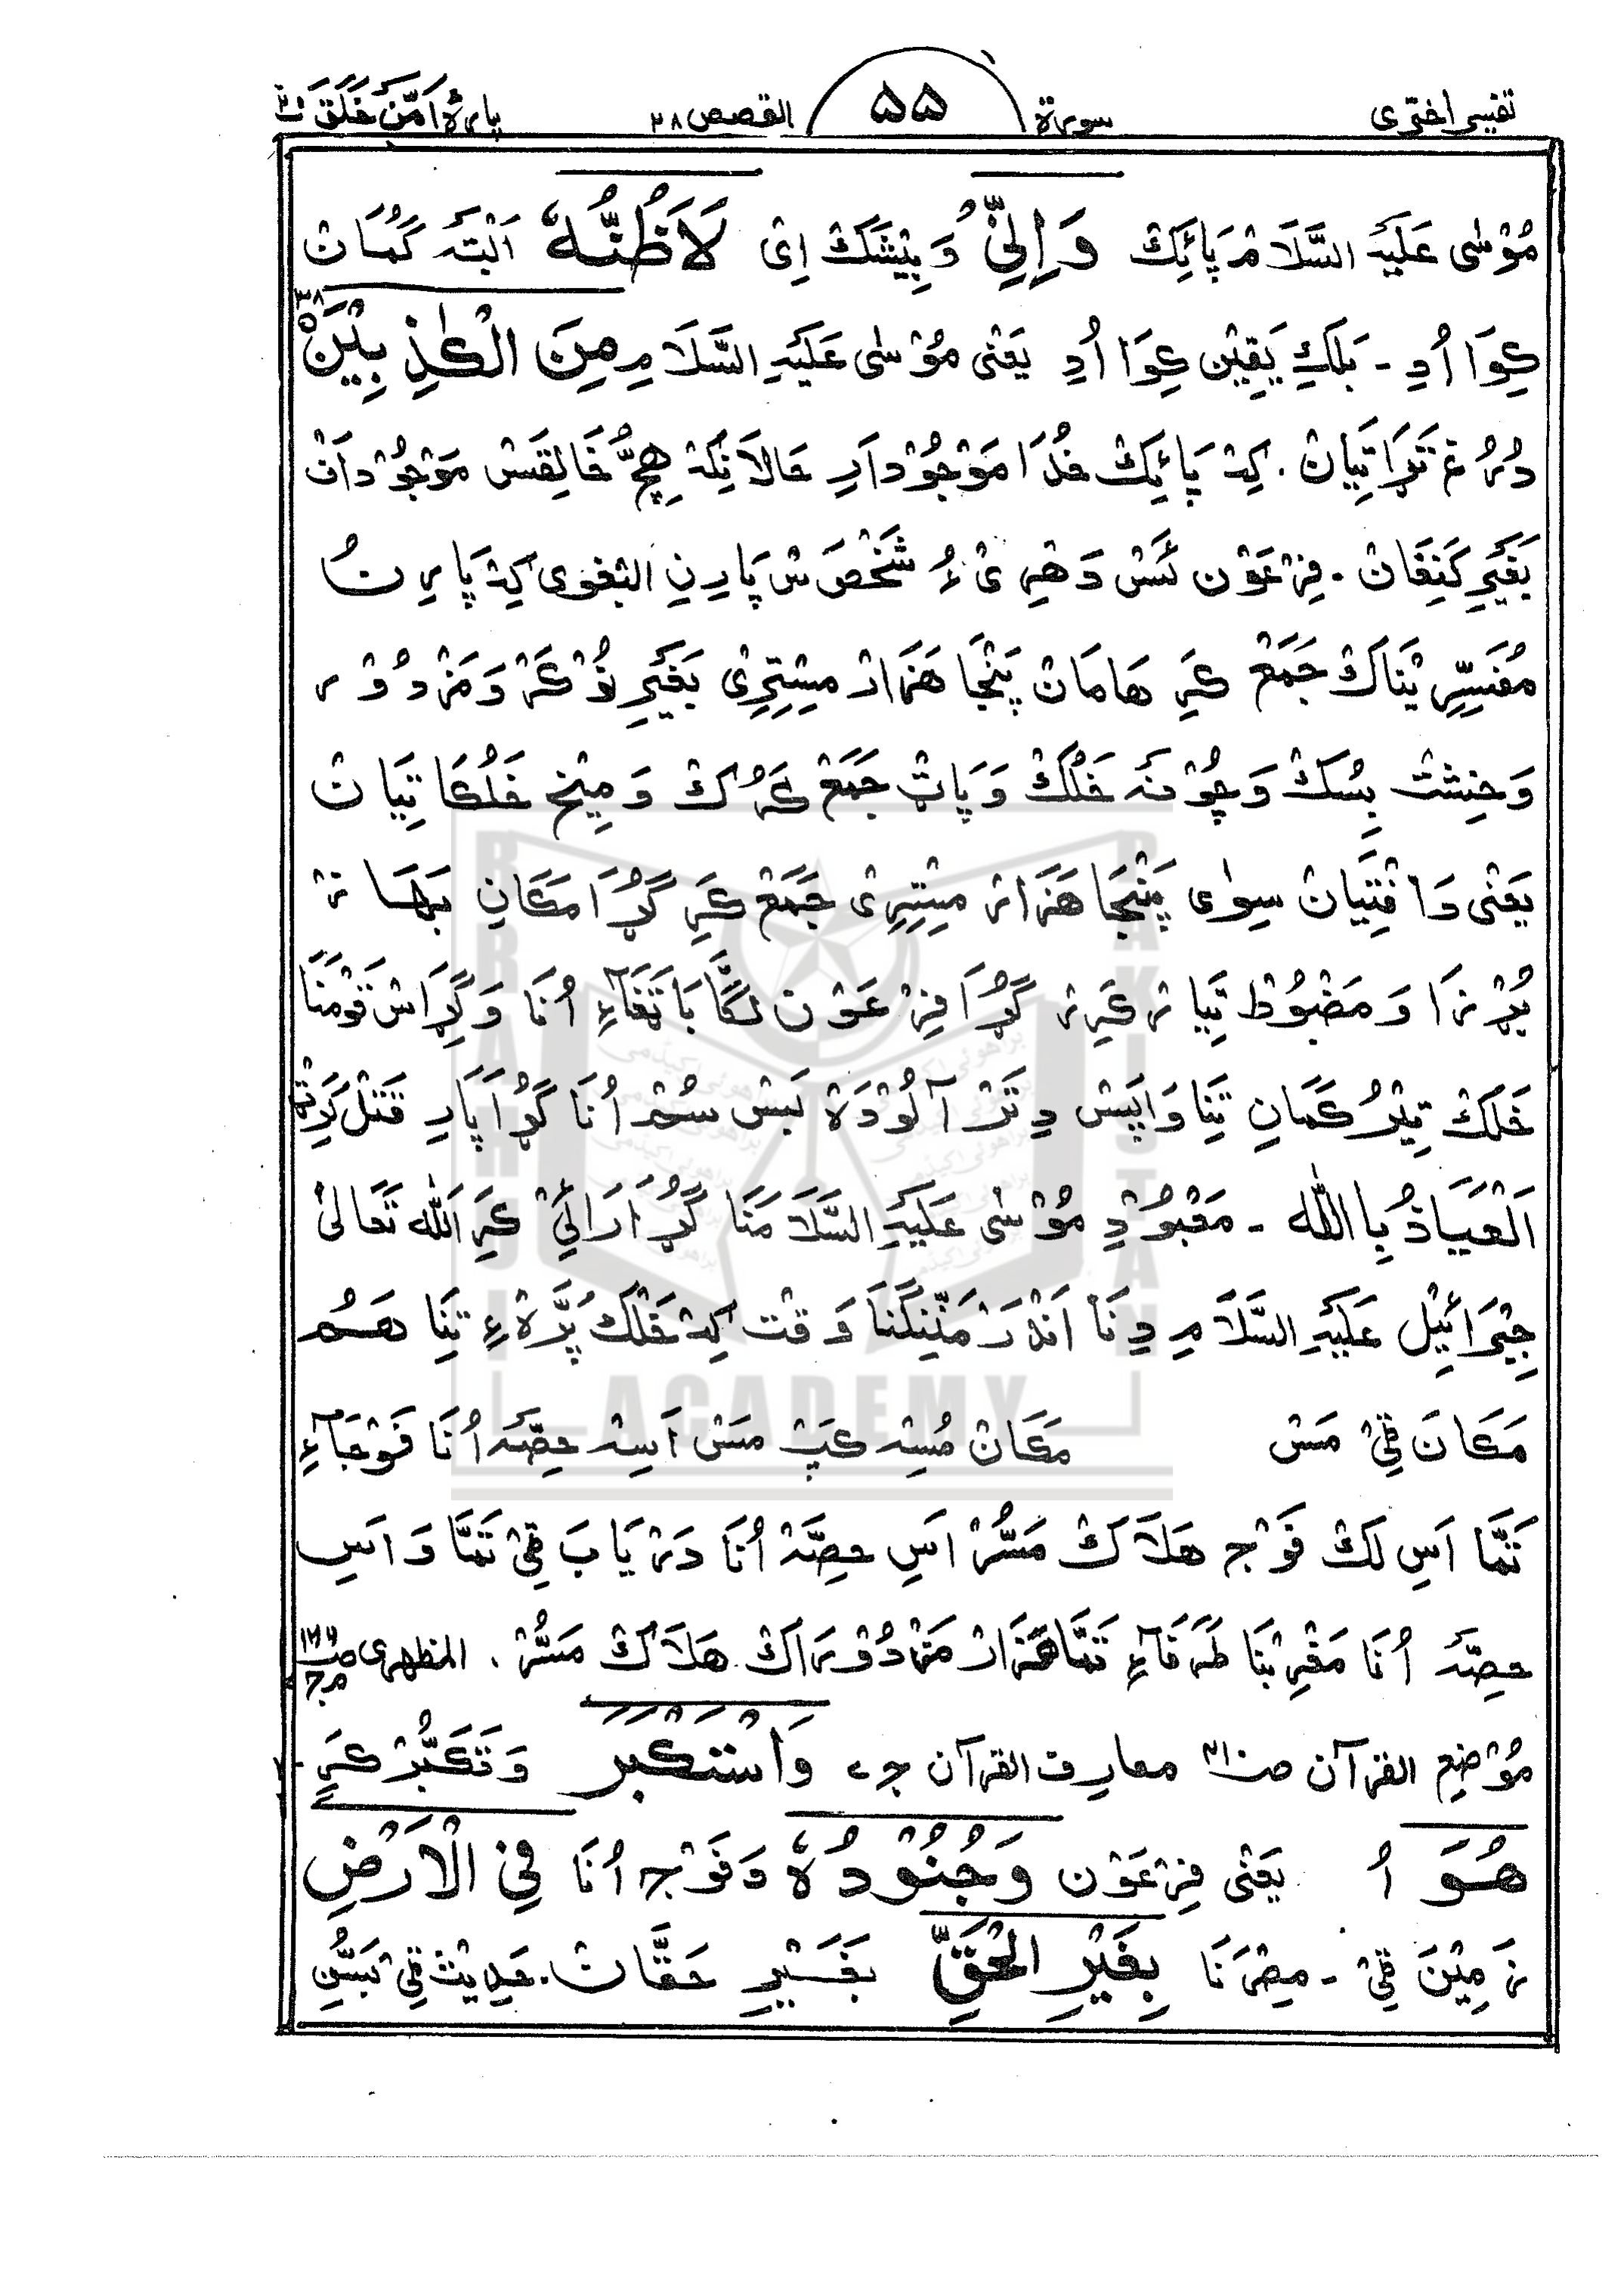 تفسیر اختری سورة ۵۵ القصص ۲۸ پارہ اَمَّنْ خَلَقَ ۲۰
مُوْسٰی عَلَیْہِ السَّلَامْ پَائِکْ وَاِنِّیْ وَبِیْشَکْ اِیْ لَاَظُنُّہٗ اَلْبَتَہ گُمَانْ
کِوَا اُدِ - بَلْکِ یَقِیْن کِوَا اُدِ یَعْنٰی مُوْسٰی عَلَیْہِ السَّلَامِ مِنَ الْکٰذِبِیْنَ ۳۸
دُرُغ تَڑَا تِیَانْ . کِہ پَائِکْ خُدَا مَوْجُوْدِ اَرِ حَالَانِکَہ ھِچُّ خَالِقَسْ مَوْجُوْد اَفْ
بَغَیْرِ کَنِفَانْ . فِرْعَوْن ئَسْ دَھْرِیْ ءُ شَخْصَسْ پَارِنِ البغوی کِہ پَارِنُ
مُفَسِّرِیْنَاکْ جَمَعْ کَرِ ھَامَانْ پَنْجَا ھَزَارْ مِسْتِرِیْ بَغَیْرِ نُوْکَرْ وَمَزْدُوْر
وَخِشْتْ بِسُکْ وَچُوْنَہ خَلْکْ وَپَاٹْ جَمَعْ کَرُکْ وَمِیْخ خَلُکَا تِیَانْ
یَعْنٰی دَافْتِیَانْ سِوٰی پَنْجَا ھَزَارْ مِسْتِرِیْ جَمَعْ کَرِ گُڑَا مَکَانِ بَھَازْ
بُرْزَا وَمَضْبُوْط تِیَارْ کَرِرْ گُڑَا فِرْعَوْن لَگَّا بَاتَغَاءِ اُنَا وَکِڑَاسْ قَوْمَنَا
خَلْکْ تِیْرُ کَمَانِ تِنَا وَاپَسْ دِتَرْ آلُوْدَہْ بَسْ سُحْر اُنَا گُڑَا پَارِ قَتْل کَرِنْٹ
اَلْعَیَاذُ بِااللّٰہ - مَعْبُوْدِ مُوْسٰی عَلَیْہِ السَّلَامَنَا گُڑَا رَاہِیْ کَرِ اَللّٰہ تَعَالٰی
جِبْرَائِیْل عَلَیْہِ السَّلَامِ دِنَا اَنْدَرْ مَنِنْگَنَا وَقْت کِہ خَلْکْ پَرَّہْءِ تِنَا ھَمُ
مَکَانَ ٹِیْ مَسْ مَکَانْ مُسِہ کَپْ مَسْ اَسِہ حِصَّہ اُنَا فَوْجَآءِ
تَمَّا اَسِ لَکْ فَوْج ھَلَاکْ مَسُّرْ اَسِ حِصَّہ اُنَا دَرْیَابَ ٹِیْ تَمَّا وَ اَسِ
حِصَّہ اُنَا مَغْرِبْنَا طَرَفَآءِ تَمَّا ھَزَارْ مَزْدُوْرَاکْ ھَلَاکْ مَسُّرْ . المظہری
مُوْضِح القرآن معارف القرآن ج۷ وَاسْتَکْبَرَ وَتَکَبُّرْ کَرِ
ھُوَ اُ یَعْنٰی فِرْعَوْن وَجُنُوْدُہٗ وَفَوْج اُنَا فِی الْاَرْضِ
زَمِیْنَ ٹِیْ - مِصْرَنَا بِغَیْرِ الْحَقِّ بَغَیْرِ حَقَّانْ . حَدِیْث ٹِیْ بَسُّنِ
BRAHUI ACADEMY PAKISTAN
براھوئی اکیڈمی